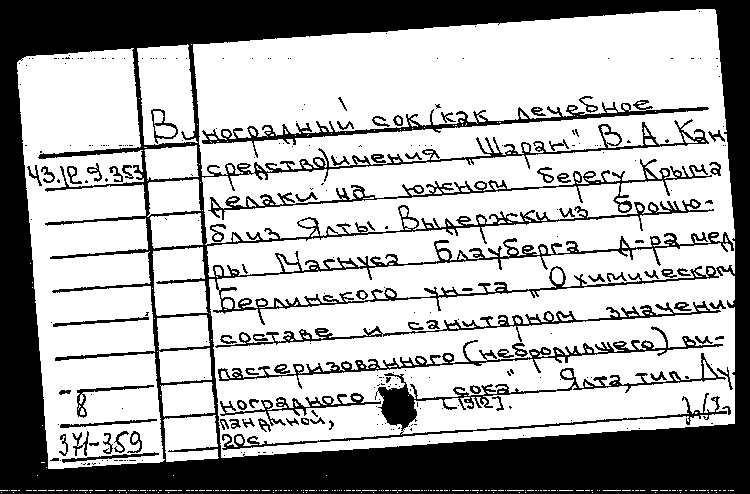 Виноградный сок (как лечебное
43.12.9.353
средство) имения "Шаран" В. А. Кан-
делаки на южном берегу Крыма
близ Ялты. Выдержки из брошю-
ры Магнуса Блауберга д-ра мед.
Берлинского ун-та "О химическом
составе и санитарном значении
пастеризованного (небродившего) ви-
ноградного сока." Ялта, тип. Лу-
8
[1912].
пандиной,
371-359
20с.